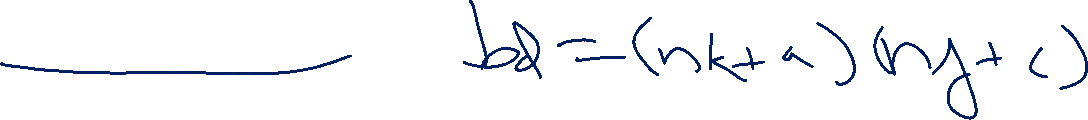 bd = (nk+a)(ny+c)